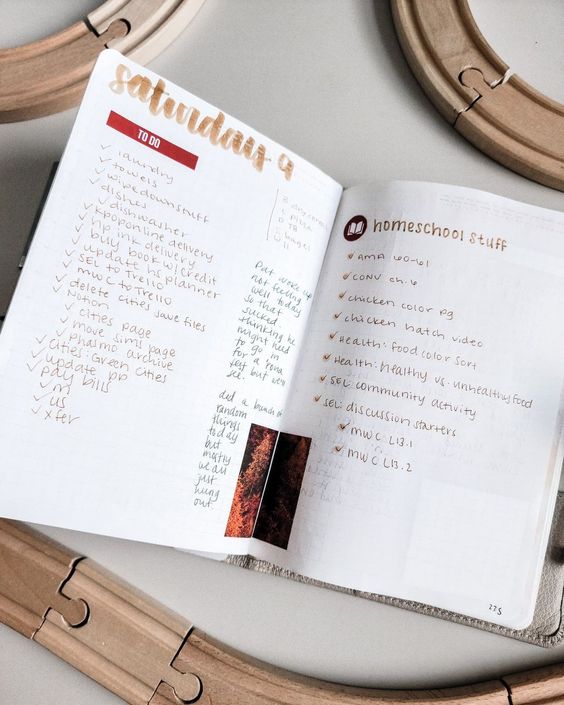 saturday 9
TO DO
✓ laundry
✓ towels
✓ wipedownstuff
✓ dishes
✓ dishwasher
✓ kpoponline delivery
✓ hp ink delivery
✓ buy book w/credit
✓ update hs planner
✓ SEL to Trello
✓ MWC to Trello
✓ delete cities save files
✓ Notion
✓ cities page
✓ move sims page
✓ phasmo archive
✓ cities: Green Cities
✓ update pp
✓ pay bills
✓ m
✓ us
✓ xfer
Pat woke up
not feeling
well today
so that
sucked.
thinking he
might need
to go in
for a 'rona
test but we'll
see.
did a bunch of
random
things
today
but
mostly
we all
just
hung
out.
homeschool stuff
✓ AMA 60-61
✓ CONV ch.6
✓ chicken color pg
✓ chicken hatch video
✓ Health: food color sort
✓ Health: healthy vs. unhealthy food
✓ SEL community activity
✓ SEL discussion starters
✓ MWC L13.1
✓ MWC L13.2
275